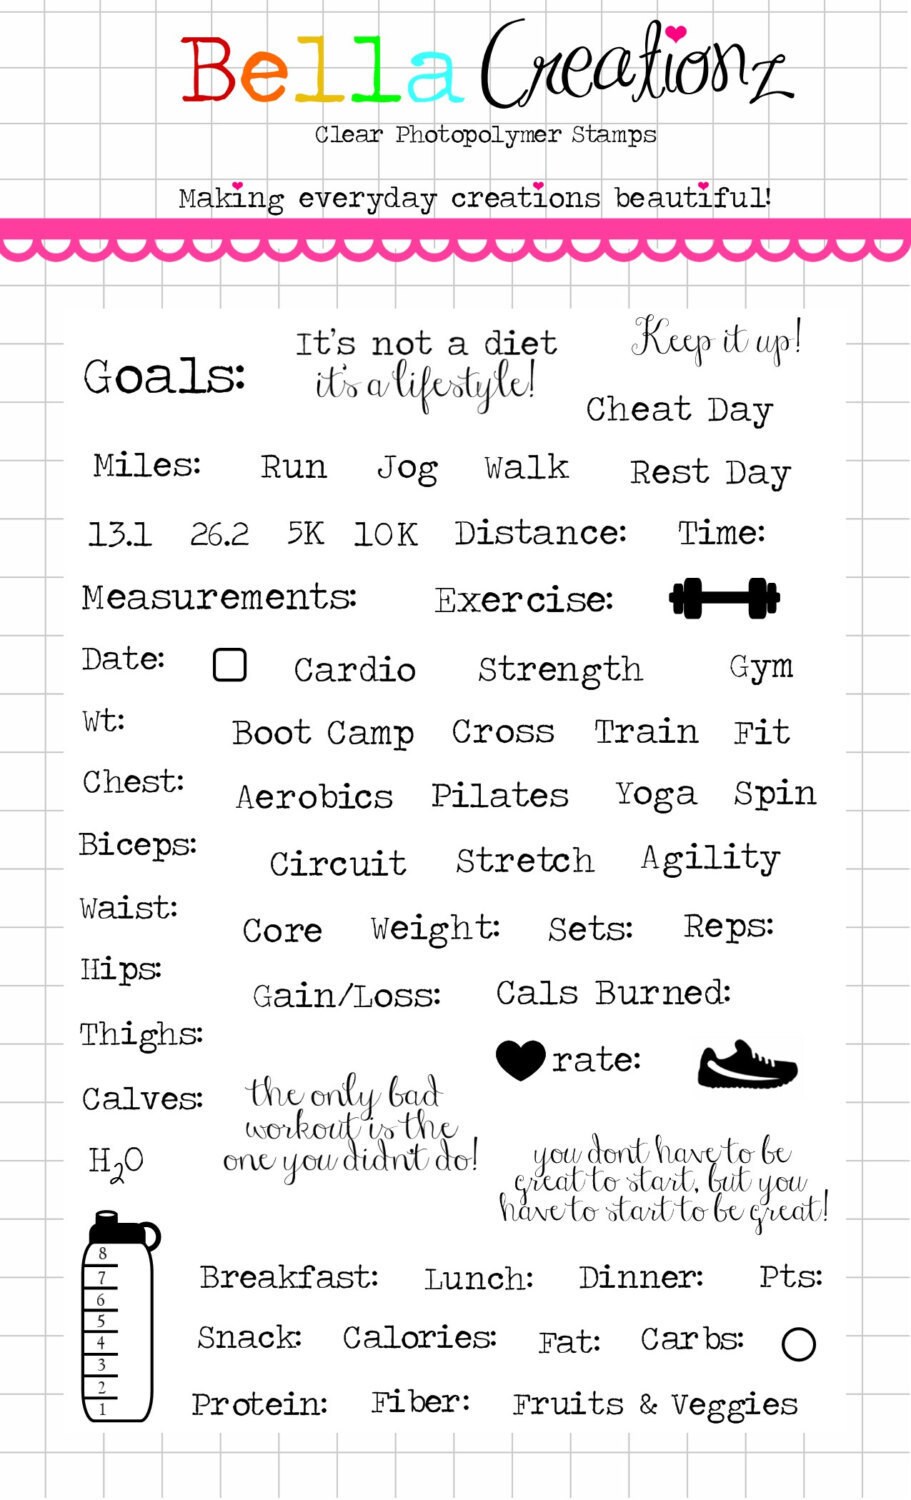 Bella Creationz
Clear Photopolymer Stamps
Making everyday creations beautiful!
Goals:
It's not a diet
it's a lifestyle!
Keep it up!
Cheat Day
Miles: Run Jog Walk Rest Day
13.1 26.2 5K 10K Distance: Time:
Measurements: Exercise:
Date: Cardio Strength Gym
Wt:
Boot Camp Cross Train Fit
Chest:
Aerobics Pilates Yoga Spin
Biceps:
Circuit Stretch Agility
Waist:
Core Weight: Sets: Reps:
Hips:
Gain/Loss: Cals Burned:
Thighs:
rate:
Calves:
the only bad
workout is the
one you didn't do!
H2O
you dont have to be
great to start, but you
have to start to be great!
8
7
6
5
4
3
2
1
Breakfast: Lunch: Dinner: Pts:
Snack: Calories: Fat: Carbs:
Protein: Fiber: Fruits & Veggies